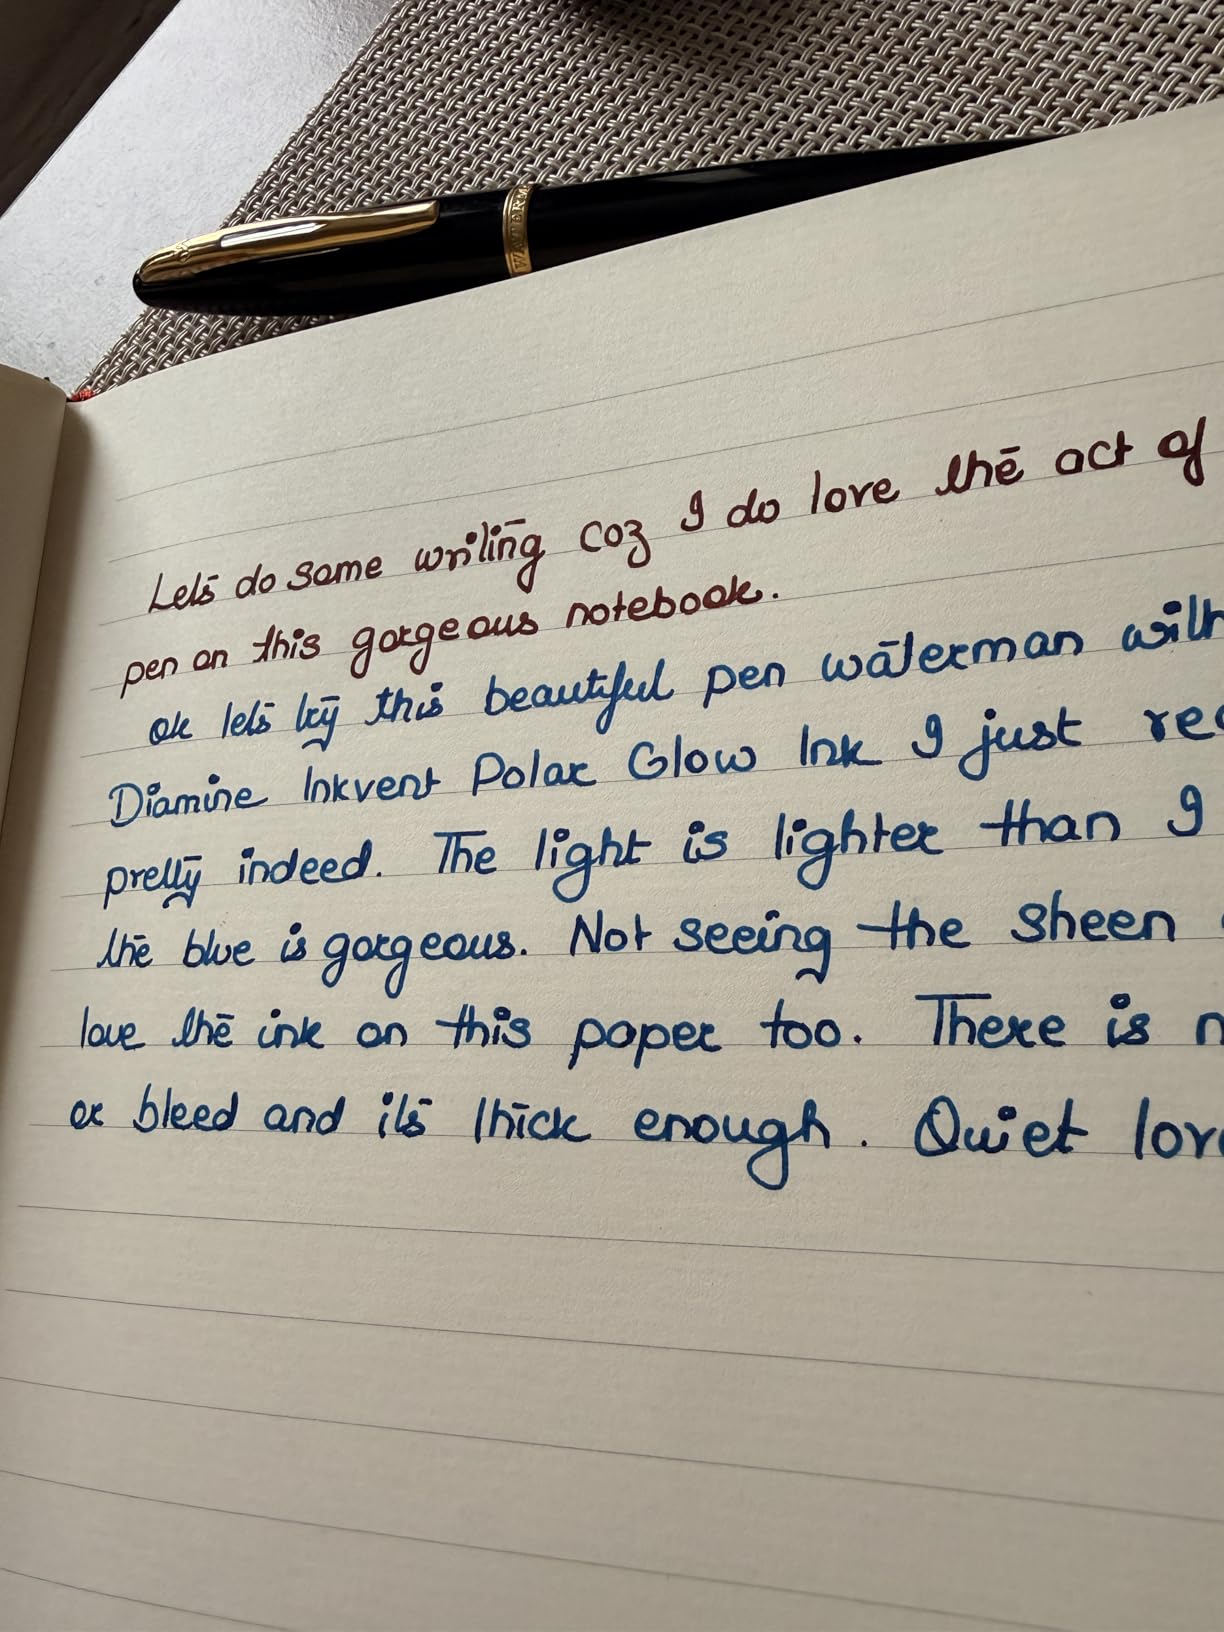 WATERM
Let's do some writing coz I do love the act of
pen on this gorgeous notebook.
ok let's try this beautiful pen waterman with
Diamine Inkvent Polar Glow Ink I just rec
pretty indeed. The light is lighter than I
the blue is gorgeous. Not seeing the sheen
love the ink on this paper too. There is n
or bleed and it's thick enough. Quiet lov